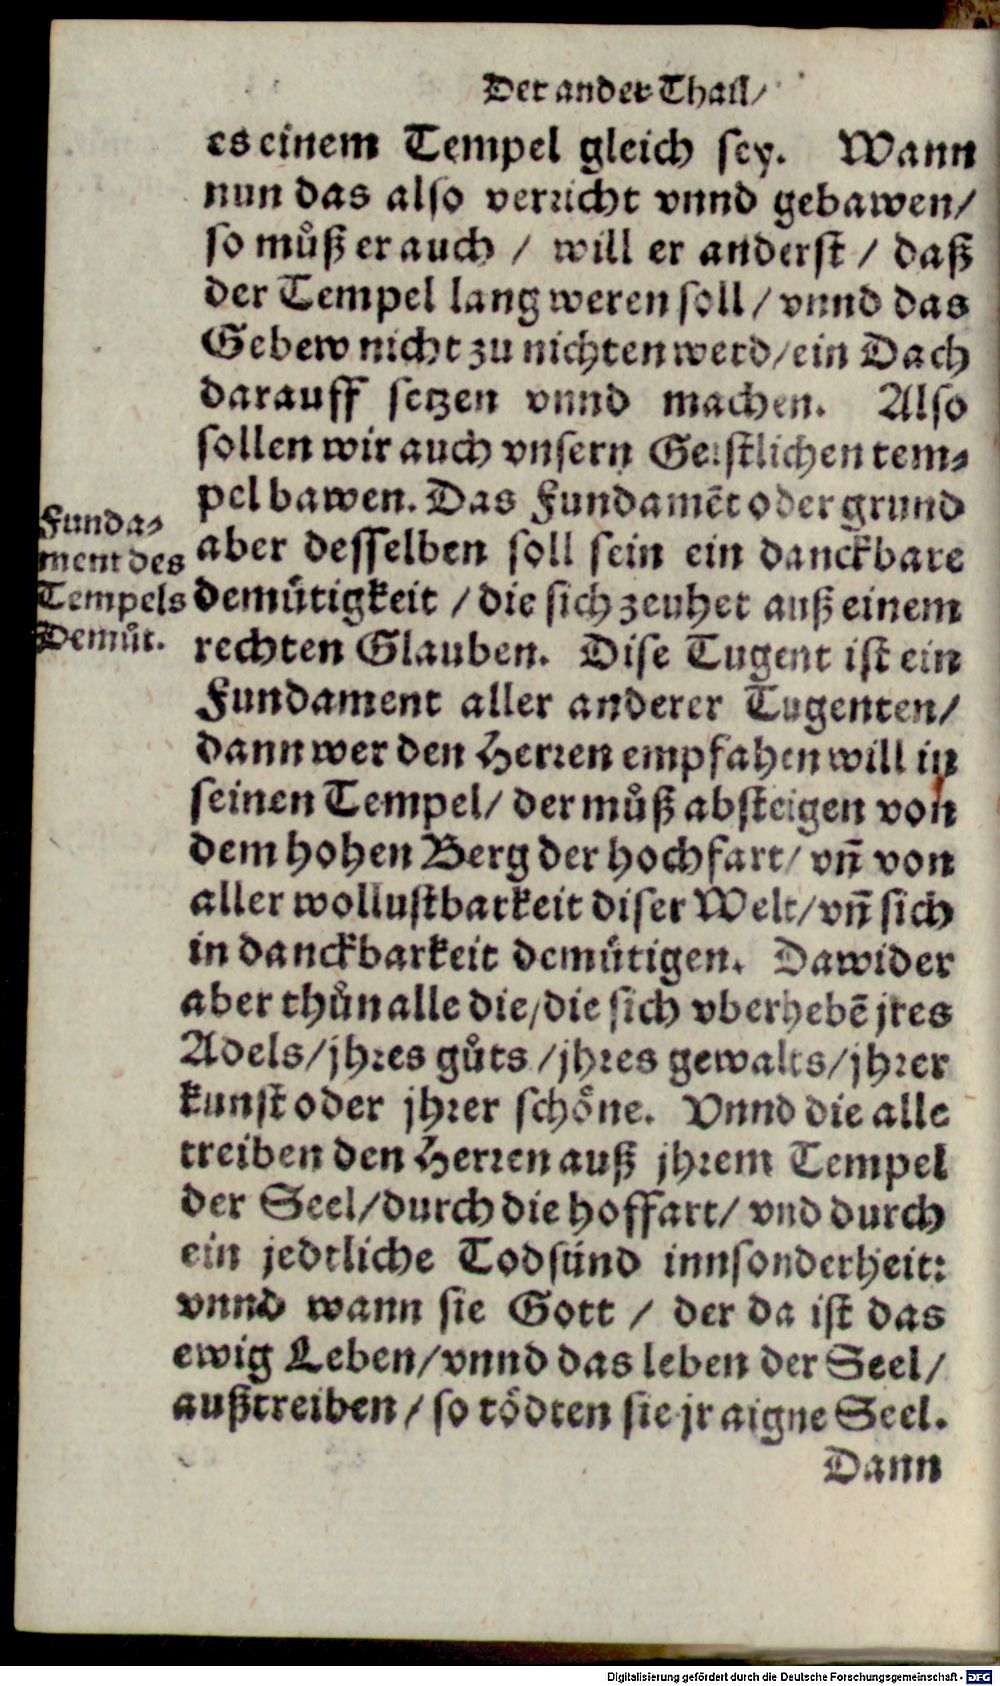 Der ander Thail/
es einem Tempel gleich sey. Wann
nun das also verricht vnnd gebawen/
so můß er auch / will er anderst / daß
der Tempel lang weren soll / vnnd das
Gebew nicht zu nichten werd/ein Dach
darauff setzen vnnd machen. Also
sollen wir auch vnsern Geistlichen tem-
pel bawen. Das Fundamẽt oder grund
aber desselben soll sein ein danckbare
demůtigkeit / die sich zeuhet auß einem
rechten Glauben. Dise Tugent ist ein
Fundament aller anderer Tugenten/
dann wer den Herren empfahen will in
seinen Tempel/ der můß absteigen von
dem hohen Berg der hochfart/ vñ von
aller wollustbarkeit diser Welt/vñ sich
in danckbarkeit demůtigen. Dawider
aber thůn alle die/die sich vberhebẽ jres
Adels/jhres gůts /jhres gewalts/jhrer
kunst oder jhrer schöne. Vnnd die alle
treiben den Herren auß jhrem Tempel
der Seel/durch die hoffart/ vnd durch
ein jedtliche Todsünd innsonderheit:
vnnd wann sie Gott / der da ist das
ewig Leben/vnnd das leben der Seel/
außtreiben / so tödten sie jr aigne Seel.
Dann
Funda-
ment des
Tempels
Demůt.
Digitalisierung gefördert durch die Deutsche Forschungsgemeinschaft - DFG